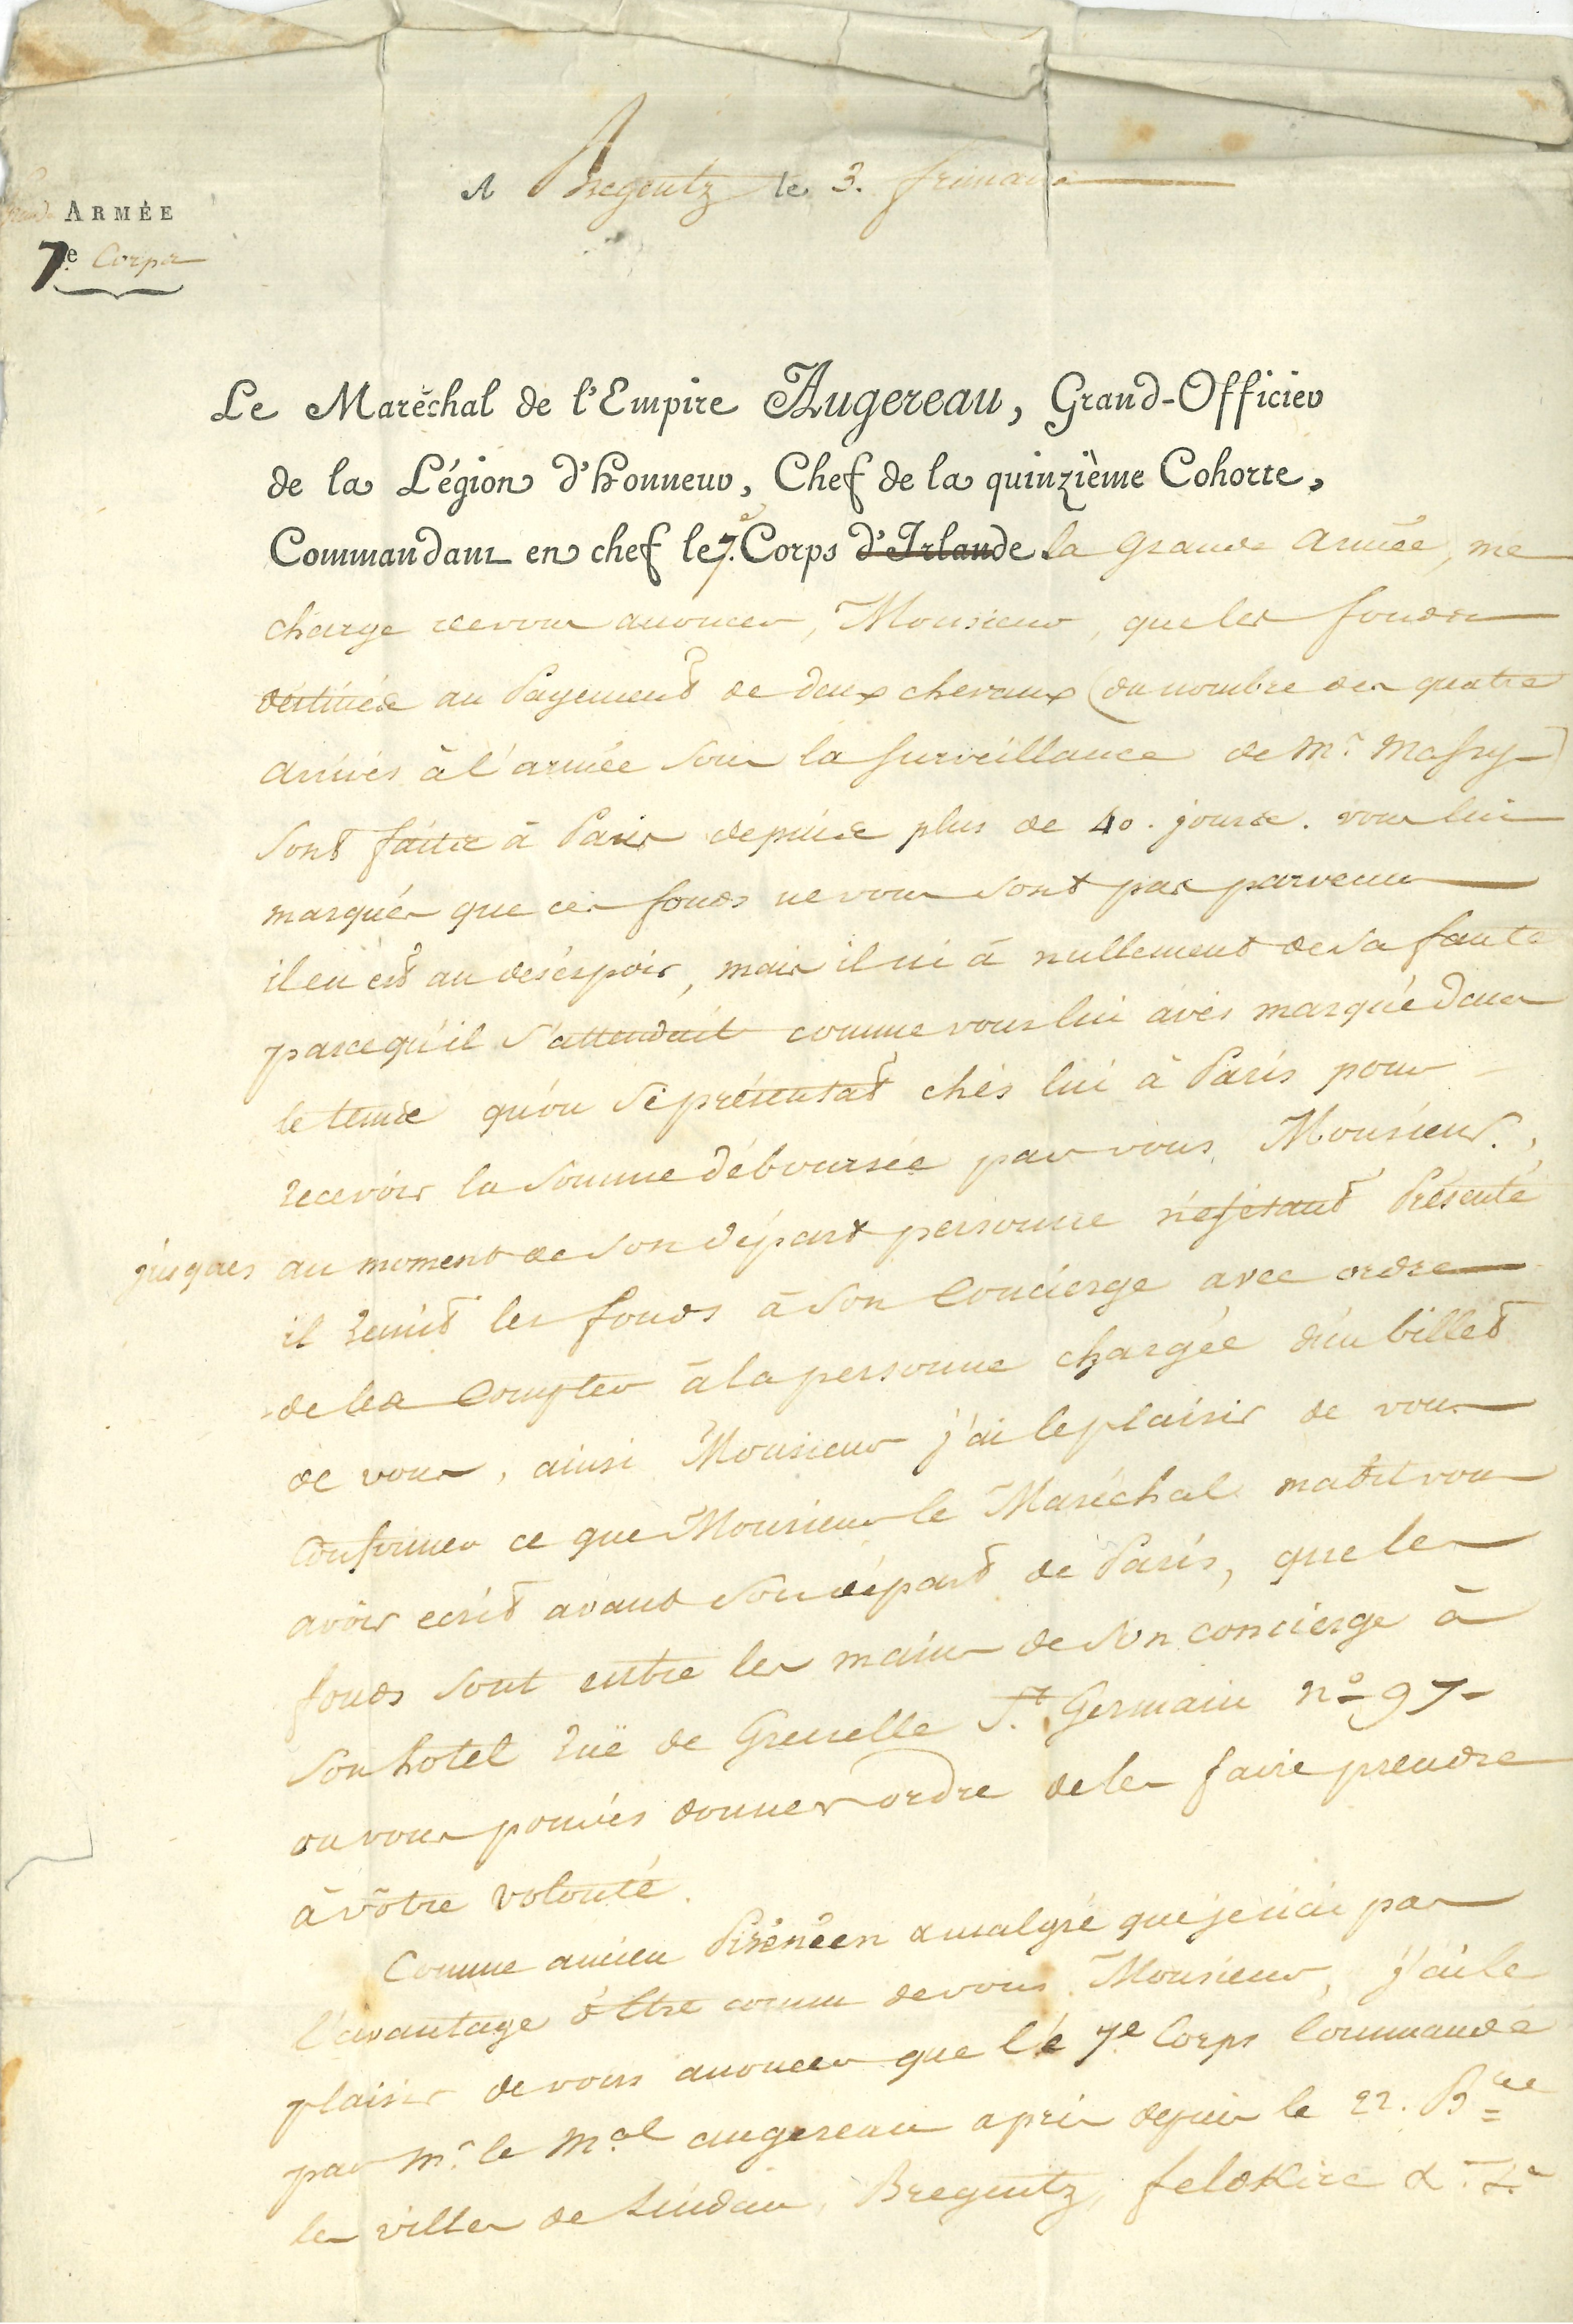 A Bregentz le 3. frimaire
Grande ARMÉE
7.e Corps
Le Maréchal de l'Empire Augereau, Grand-Officier
de la Légion d'honneur, Chef de la quinzième Cohorte,
Commandant en chef le 7.e Corps d'Irlande la grande armée, me
charge de vous anoncer, Monsieur, que les fonds
déstinés au Payement de deux chevaux (du nombre des quatre
arrivés à l'armée sous la surveillance de Mr.
sont faits à Paris depuis plus de 40. jours. vous lui
marqués que ces fonds ne vous sont pas parvenus
il en est au desespoir, mais il ni à nullement de sa faute
parcequ'il s'attendait comme vous lui aviés marqué dans
le tems qu'on se présentat chés lui à Paris pour
recevoir la somme déboursée par vous, Monsieur.,
jusques au moment de son départ personne n'éstant Présenté
il remit les fonds à son Concierge avec ordre
de les Compter à la personne chargée d'un billet
de vous, ainsi Monsieur j'ai le plaisir de vous
Confirmer ce que Monsieur le Maréchal ma dit vous
avoir ecrit avant son départ de Paris, que les
fonds sont entre les mains de son concierge à
son hotel ruë de Grenelle St. Germain no. 97
ou vous pouvés donner ordre de les faire prendre
à vôtre volonté.
Comme ancien Pirénéen & malgré que je n'ai pas
l'avantage d'être connu de vous Monsieur, j'ai le
plaisir de vous anoncer que le 7e Corps Commandé
par Mr. le Mal augereau a pris depuis le 22. Bre
les villes de Lindau, Bregentz, feldkirc &.